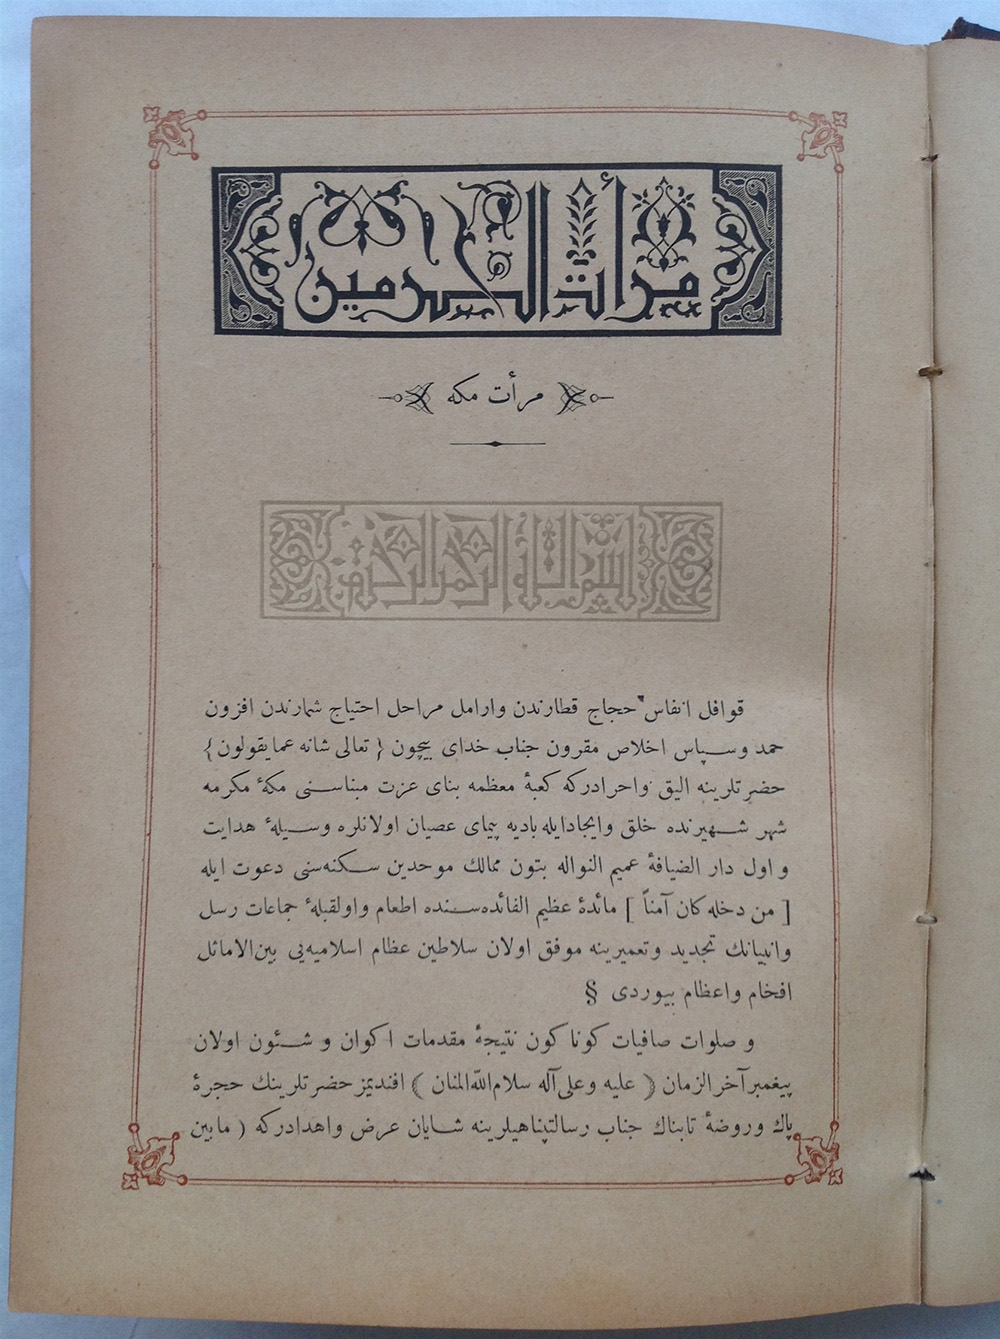 مرأت الحرمين
مرأت مكه
بسم الله الرحمن الرحيم
قوافل انفاس حجاج قطارندن وارامل مراحل احتياج شمارندن افزون
حمد وسپاس اخلاص مقرون جناب خداى بيچون { تعالى شانه عما يقولون }
حضرتلرينه اليق واحرادركه كعبهٔ معظمه بناى عزت مبناسنى مكهٔ مكرمه
شهر شهيرنده خلق وايجادايله باديه پيماى عصيان اولانلره وسيلهٔ هدايت
و اول دار الضيافهٔ عميم النواله بتون ممالك موحدين سكنه‌سنى دعوت ايله
[ من دخله كان آمناً ] مائدهٔ عظيم الفائده‌سنده اطعام واولقبلهٔ جماعات رسل
وانبيانك تجديد وتعميرينه موفق اولان سلاطين عظام اسلاميه‌يى بين‌الاماثل
افخام واعظام بيوردى §
و صلوات صافيات كوناكون نتيجهٔ مقدمات اكوان و شئون اولان
پيغمبر آخر الزمان ( عليه وعلى آله سلام الله المنان ) افنديمز حضرتلرينك حجرهٔ
پاك وروضهٔ تابناك جناب رسالتپناهيلرينه شايان عرض واهدادركه ( مابين